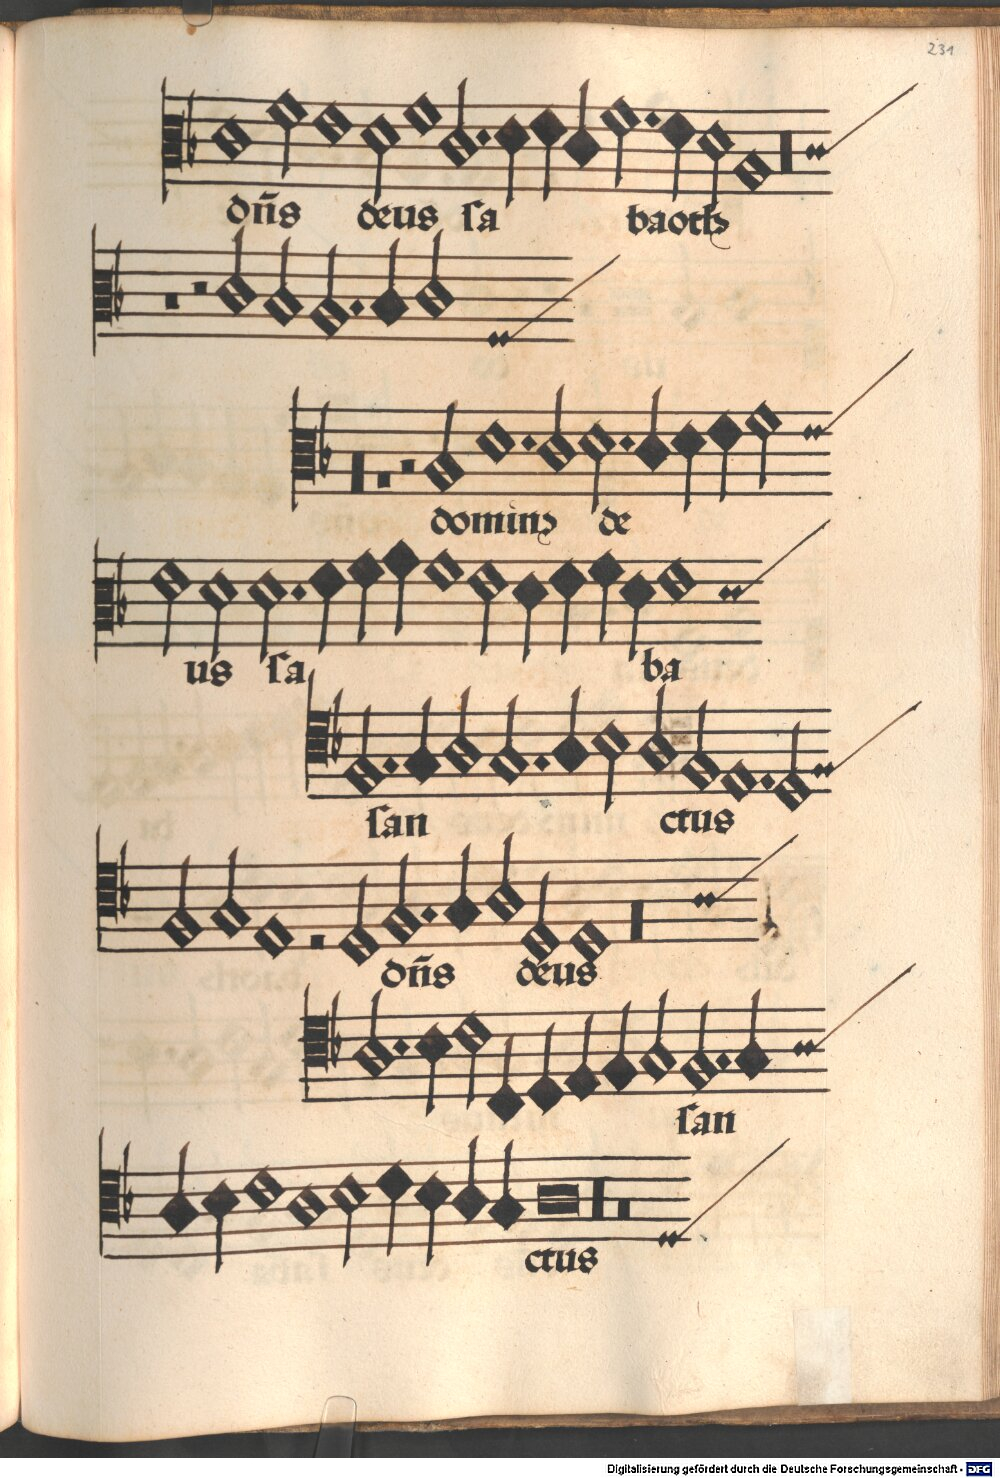 231
dn̄s deus sa baoth
dominꝫ de
us sa ba
san ctus
dn̄s deus
san
ctus
Digitalisierung gefördert durch die Deutsche Forschungsgemeinschaft - DFG